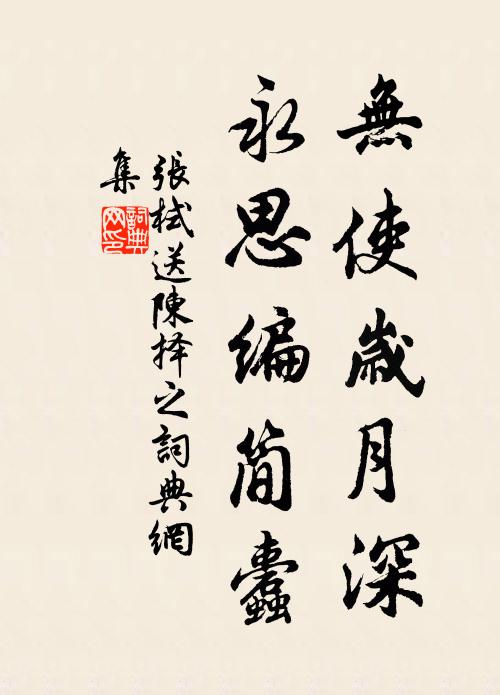 無使歲月深
永思編简蠹
張栻送陳择之詞典網
集
詞典
网印